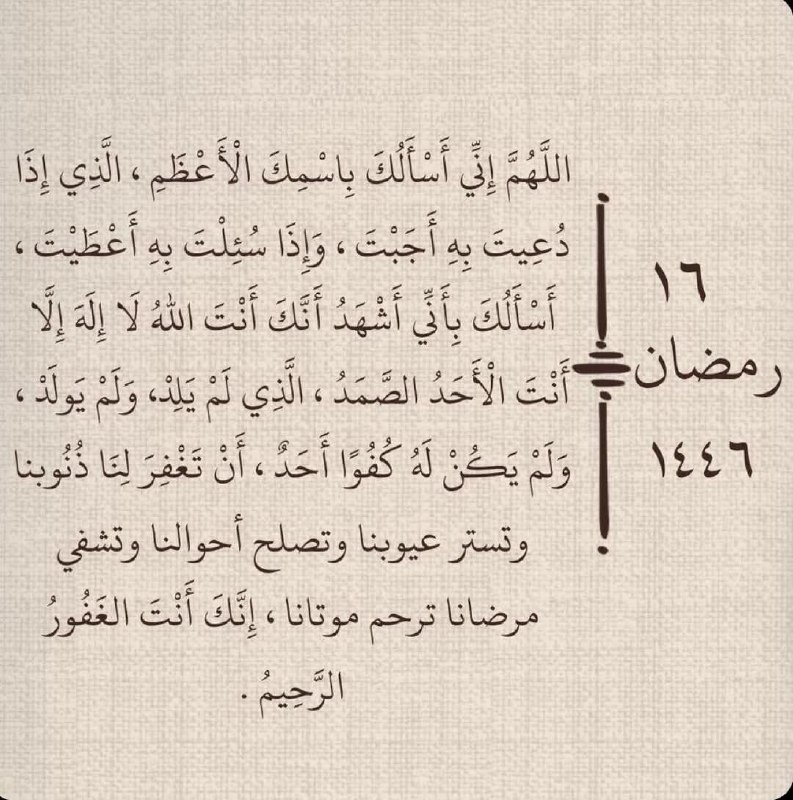 ١٦
رمضان
١٤٤٦
اللَّهُمَّ إِنِّي أَسْأَلُكَ بِاسْمِكَ الْأَعْظَمِ ، الَّذِي إِذَا
دُعِيتَ بِهِ أَجَبْتَ ، وَإِذَا سُئِلْتَ بِهِ أَعْطَيْتَ ،
أَسْأَلُكَ بِأَنِّي أَشْهَدُ أَنَّكَ أَنْتَ اللهُ لَا إِلَهَ إِلَّا
أَنْتَ الْأَحَدُ الصَّمَدُ ، الَّذِي لَمْ يَلِدْ، وَلَمْ يَولَدْ ،
وَلَمْ يَكُنْ لَهُ كُفُوًا أَحَدٌ ، أَنْ تَغْفِرَ لِنَا ذُنُوبنا
وتستر عيوبنا وتصلح أحوالنا وتشفي
مرضانا ترحم موتانا ، إِنَّكَ أَنْتَ الغَفُورُ
الرَّحِيمُ .